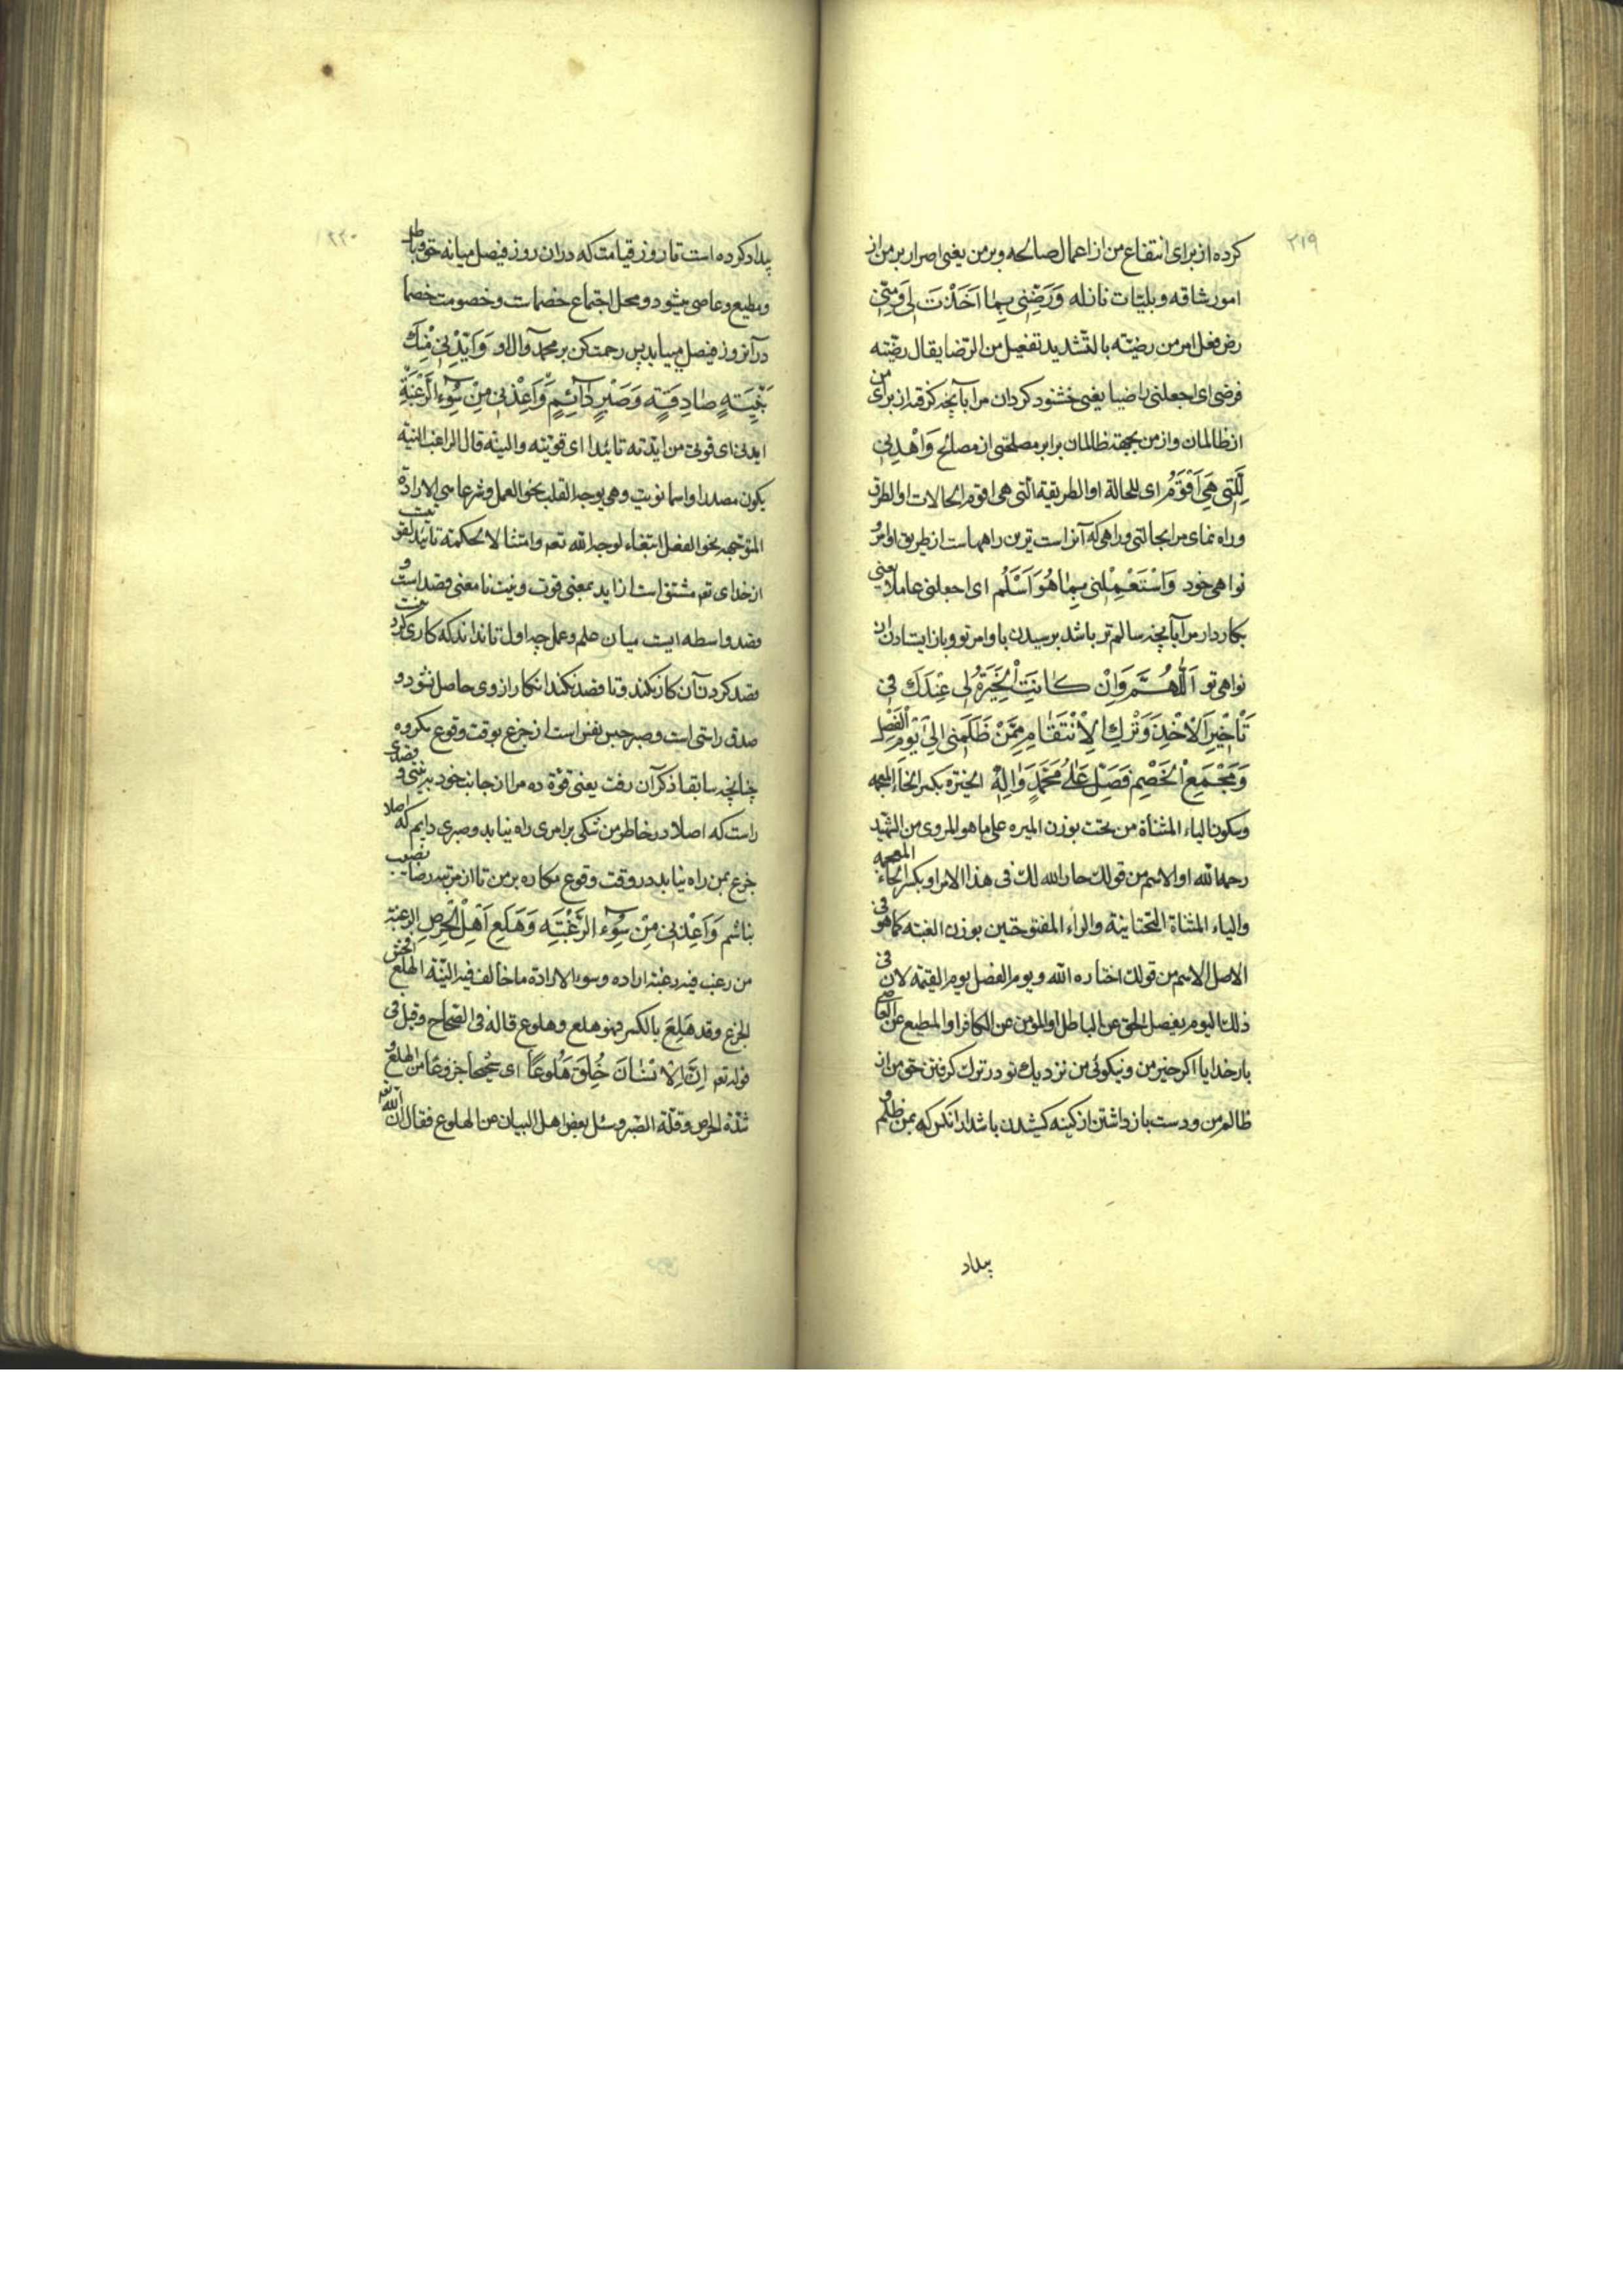 ۲۱۹
کرده از برای انتفاع من از اعمال صالحه و بر من یعنی اصرار بر من از
امور شاقه و بلیّات نازله وَرَضِّنِي بِمَا اَخَذْتَ لِي وَمِنِّي
رض فعل امر من رضیّته بالتشدید تفعیل من الرضا یقال رضّیته
فرضی ای اجعلنی راضیا یعنی خشنود کردان مرا بآنچه کرفته از برای من
از ظالمان و از من بجهة ظالمان برابر مصلحتی از مصالح وَاهْدِنِي
لِلَّتِي هِيَ اَقْوَمُ ای للحالة او الطریقة التی هی اقوم الحالات او الطرق
و راه نمای مرا بحالتی و راهی که آن راست ترین راههاست از طریق اوامر و
نواهی خود وَاسْتَعْمِلْنِي بِمَا هُوَ اَسْلَمُ ای اجعلنی عاملا یعنی
بکار دار مرا بآنچه سالم تر باشد برسیدن باوامر تو و باز ایستادن از
نواهی تو اَللّٰهُمَّ وَاِنْ كَانَتِ الْخِيَرَةُ لِي عِنْدَكَ فِي
تَأْخِيرِ الْاَخْذِ لِي وَتَرْكِ الْاِنْتِقَامِ مِمَّنْ ظَلَمَنِي اِلَىٰ يَوْمِ الْفَصْلِ
وَمَجْمَعِ الْخَصْمِ فَصَلِّ عَلَىٰ مُحَمَّدٍ وَاٰلِهٖ الخیرة بکسر الخاء المعجمه
وسکون الیاء المثناة من تحت بوزن المیره علی ما هو المروی من الشهید
رحمه الله او الاسم من قولک خار الله لک فی هذا الامر او بکسر الخاء المعجمه
والیاء المثناة التحتانیة والراء المفتوحتین بوزن العنبه کما هو فی
الاصل الاسم من قولک اختاره الله و یوم الفصل یوم القیمة لان فی
ذلک الیوم یفصل الحق عن الباطل او المؤمن عن الکافر او المطیع عن العاصی
بار خدایا اکر خیر من و نیکوئی من نزدیک تو در ترک کرفتن حق من از
ظالم من و دست باز داشتن از کینه کشیدن باشد از انکس که بمن ظلم و
بیداد
۲۲۰
بیداد کرده است تا روز قیامت که در ان روز فیصل میانه حق و باطل
و مطیع و عاصی میشود و محل اجتماع خصمات و خصومت خصما
در آنروز فیصل مییابد پس رحمت کن بر محمد و آل او وَاَيِّدْنِي مِنْكَ
بِنِيَّةٍ صَادِقَةٍ وَصَبْرٍ دَائِمٍ وَاَعِذْنِي مِنْ سُوءِ الرَّغْبَةِ
ایدنی ای قونی من ایّدته تائیدا ای قوّیته والنیة قال الراغب النیّة
یکون مصدرا واسما نویت وهی توجه القلب نحو العمل وشرعا هی الارادة
المتوجهه نحو الفعل ابتغاء لوجه الله تعم وامتثالا لحکمته تائید تقویت
از خدای تعم مشتق است از اید بمعنی قوت و نیت نا معنی قصد است و
قصد واسطه ایست میان علم و عمل چه اول تا نداند که کاری کردنیست
قصد کردن آن کار نکند و تا قصد نکند انکار از وی حاصل نشود و
صدق راستی است و صبر حبس نفس است از جزع بوقت وقوع مکروه
چنانچه سابقا ذکر آن رفت یعنی قوّة ده مرا از جانب خود به نیتی و قصدی
راست که اصلا در خاطر من شکی بر امری راه نیابد و صبری دایم که اصلا
جزع بمن راه نیابد در وقت وقوع مکاره بر من تا از مرتبه رضا بی نصیب
نباشم وَاَعِذْنِي مِنْ سُوءِ الرَّغْبَةِ وَهَلَعِ اَهْلِ الْحِرْصِ الرغبة
من رغب فیه رغبة اراده وسوء الارادة ما خالف فیه النیّة الهلع افحش
الجزع وقد هَلِعَ بالکسر فهو هلع وهلوع قاله فی الصحاح وقیل فی
قوله تعم اِنَّ الْاِنْسَانَ خُلِقَ هَلُوعًا ای شحیحا جزوعا من الهلع و
شدة الحرص وقلّة الصبر وسئل بعض اهل البیان عن الهلوع فقال ان الله تعم